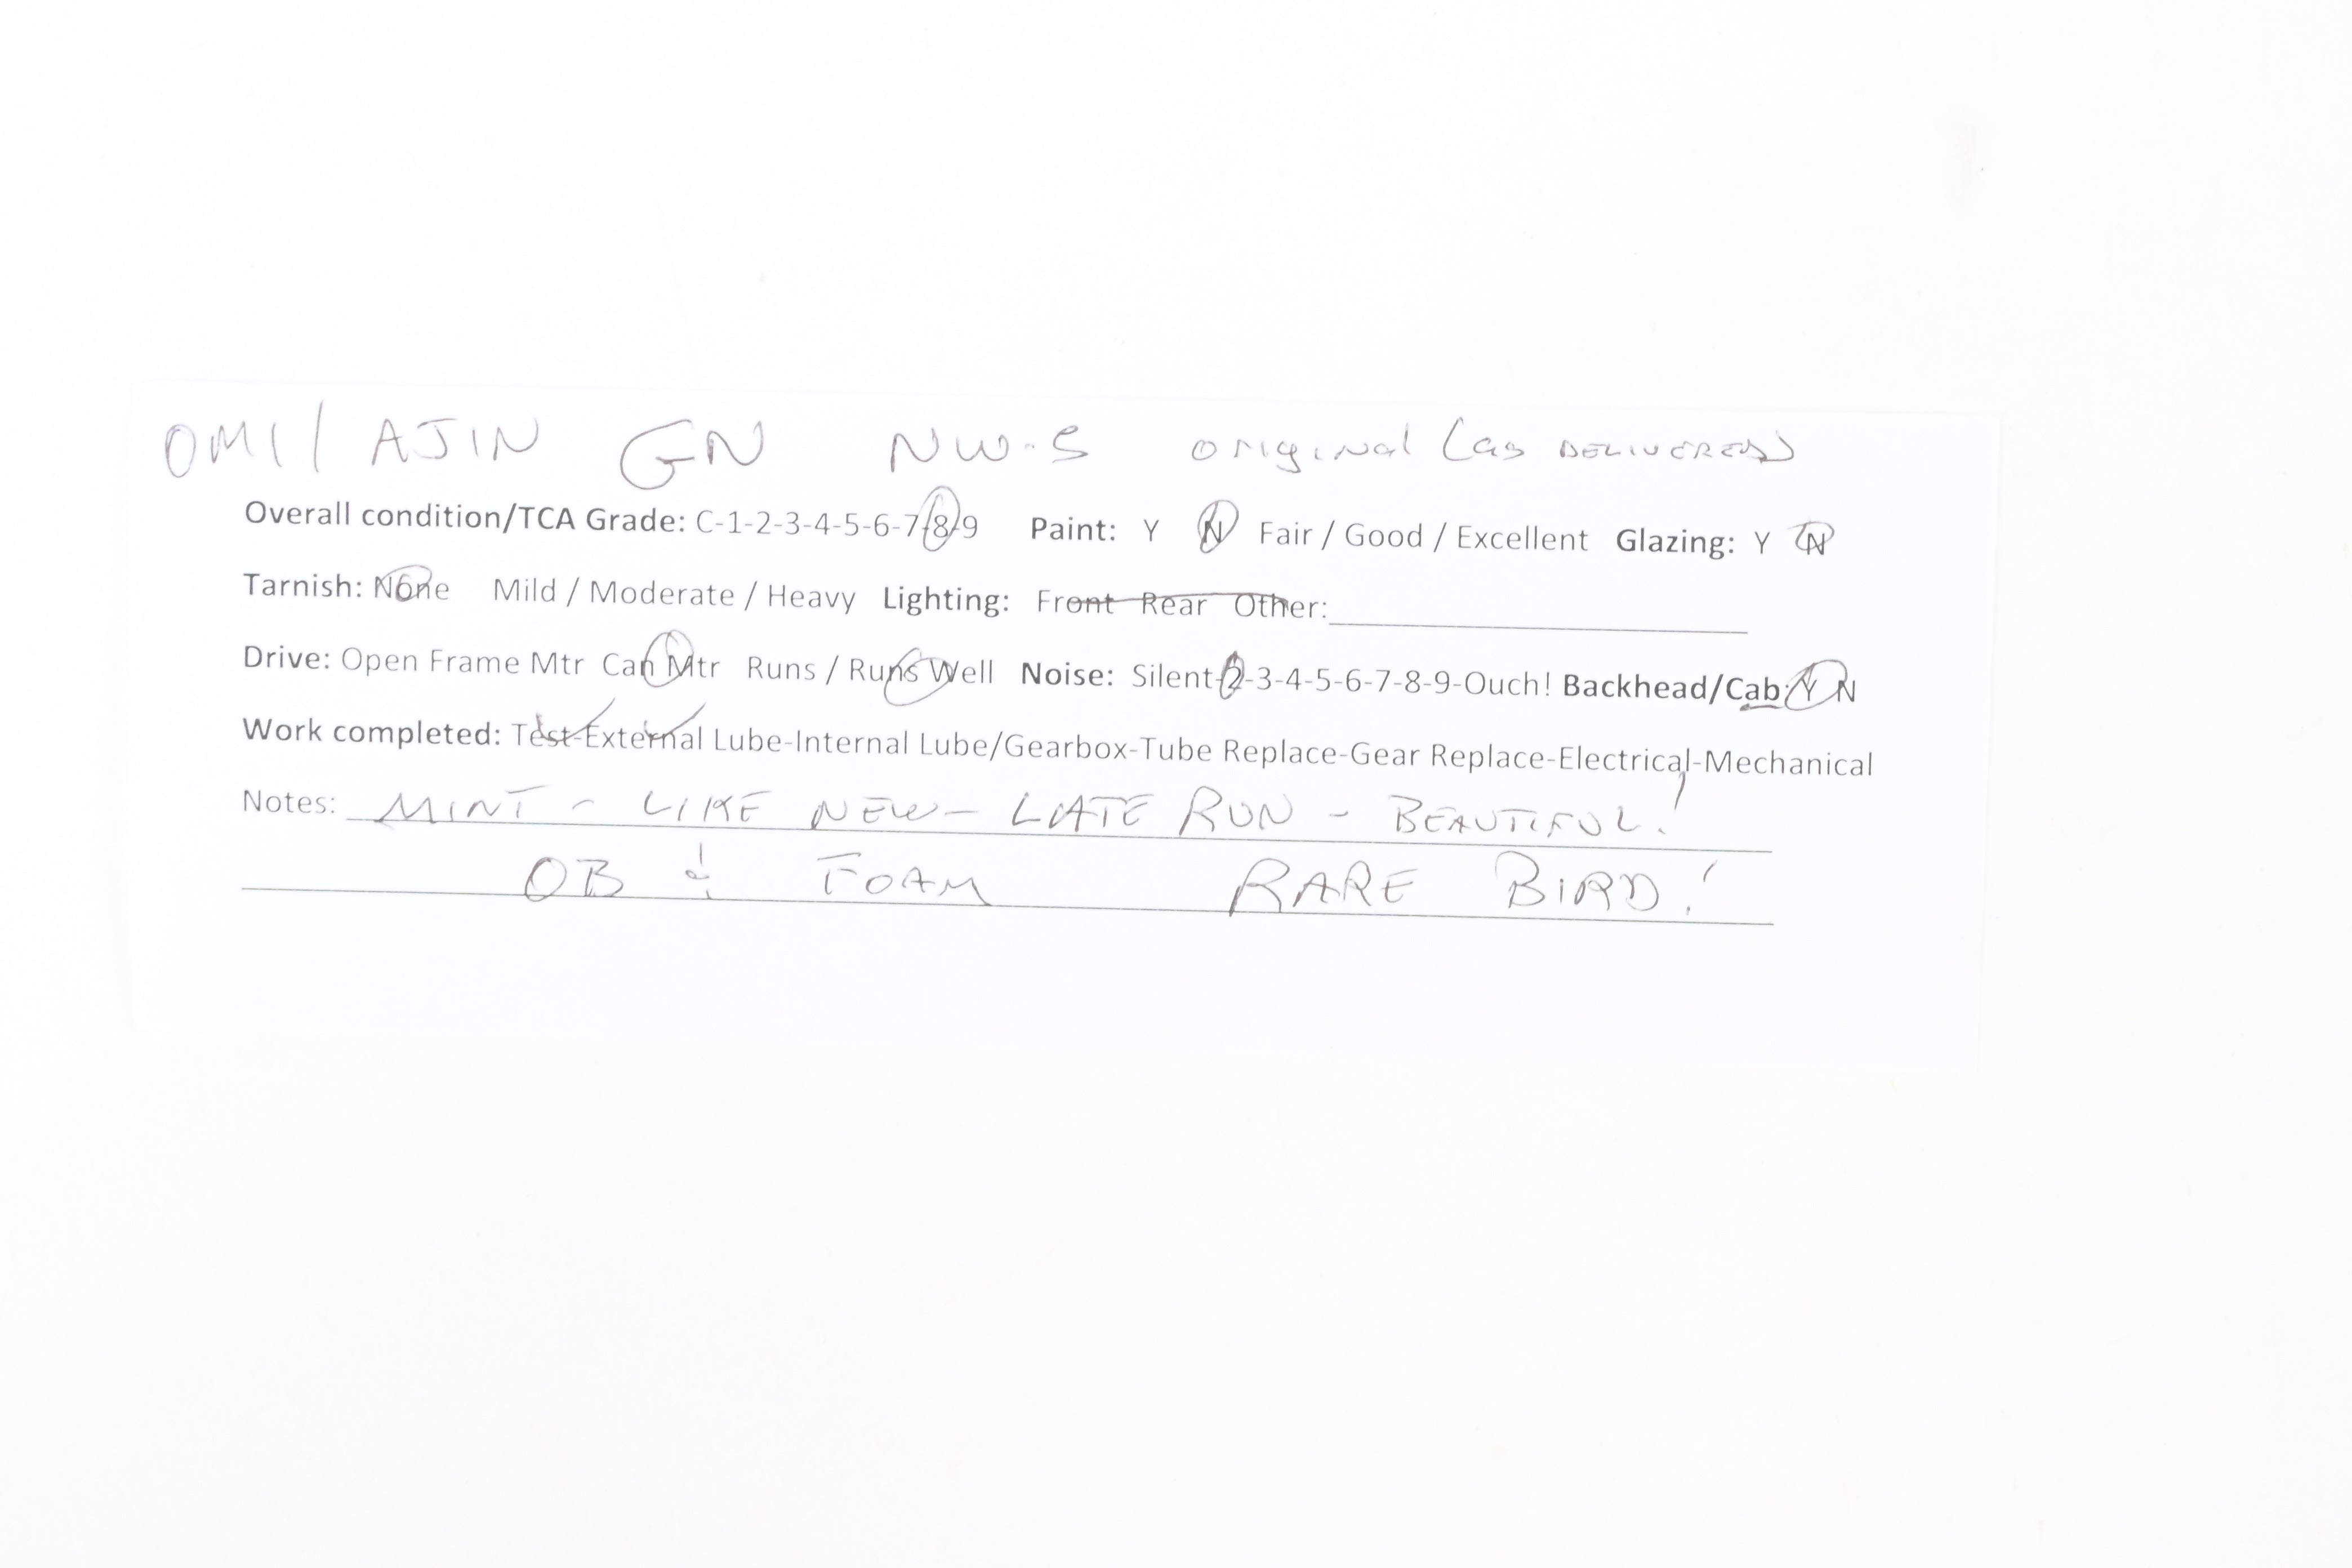 OMI/AJIN GN NW-S original (as DELIVERED)
Overall condition/TCA Grade: C-1-2-3-4-5-6-7-8-9 Paint: Y N Fair / Good / Excellent Glazing: Y N
Tarnish: None Mild / Moderate / Heavy Lighting: Front Rear Other:
Drive: Open Frame Mtr Can Mtr Runs / Runs Well Noise: Silent-2-3-4-5-6-7-8-9-Ouch! Backhead/Cab: Y N
Work completed: Test-External Lube-Internal Lube/Gearbox-Tube Replace-Gear Replace-Electrical-Mechanical
Notes: MINT - LIKE NEW - LATE RUN - BEAUTIFUL!
OB & FOAM RARE BIRD!